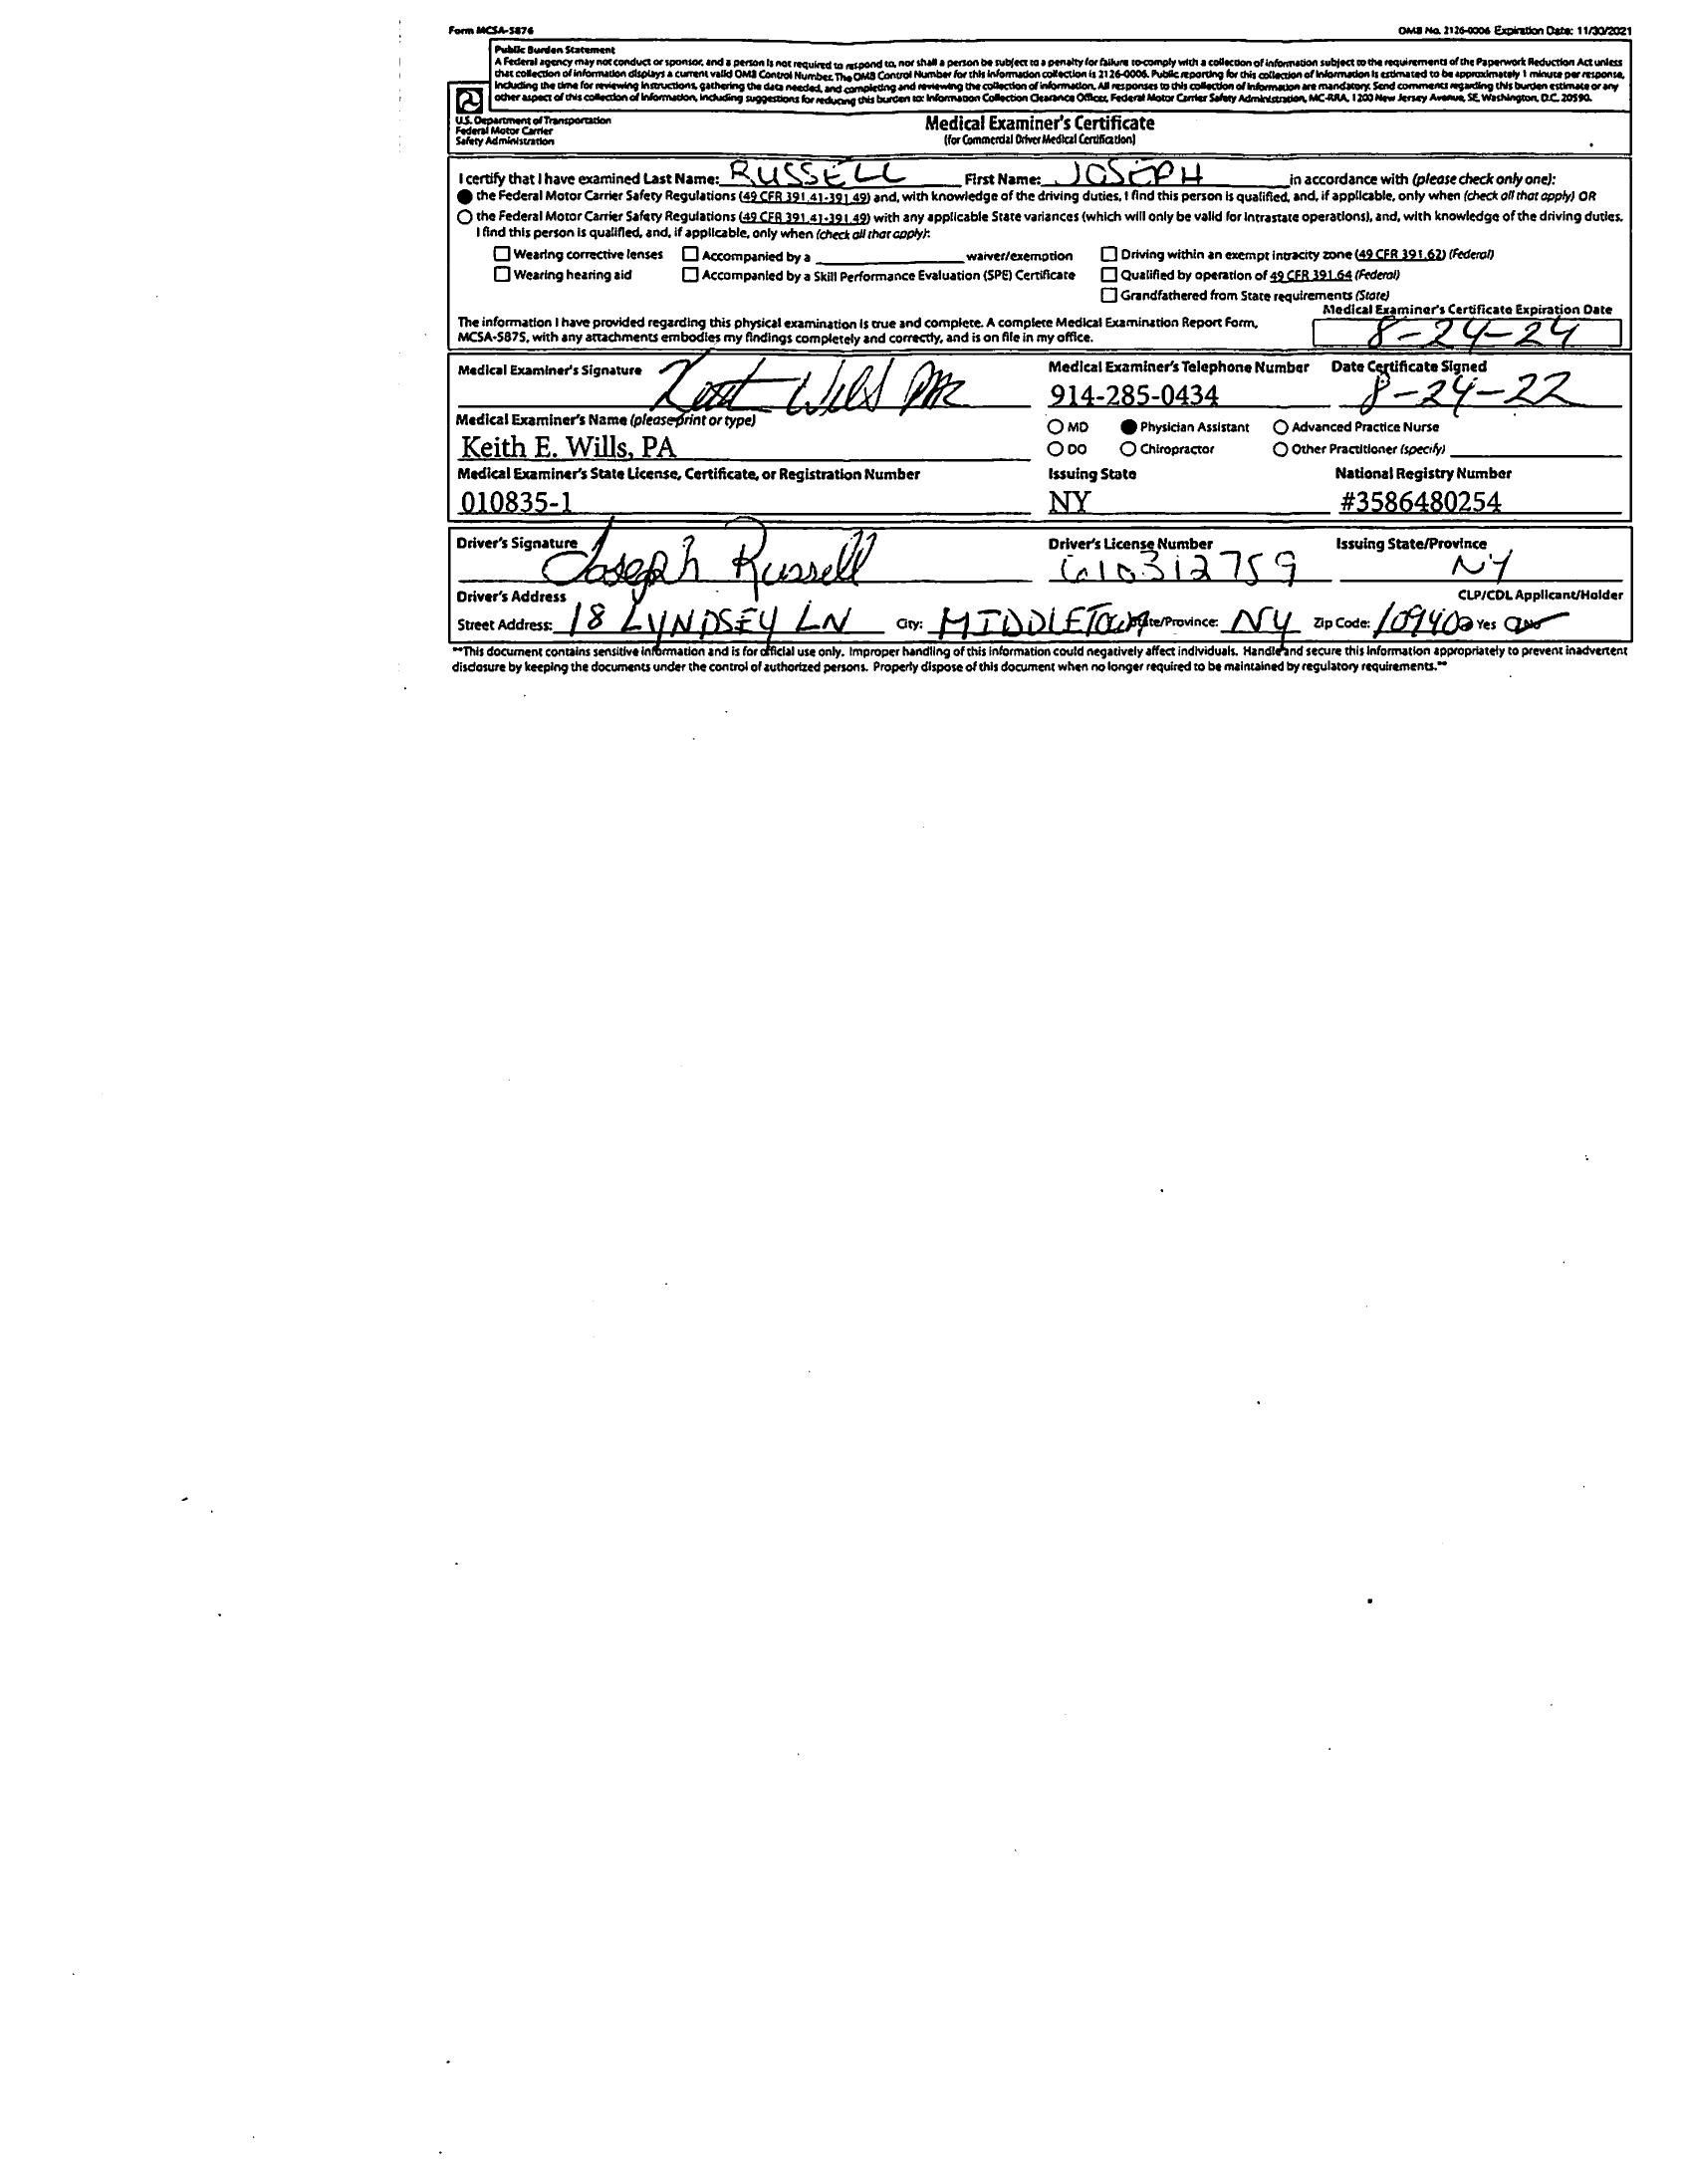 Form MCSA-5876 OMB No. 2126-0006 Expiration Date: 11/30/2021
Public Burden Statement
A Federal agency may not conduct or sponsor, and a person is not required to respond to, nor shall a person be subject to a penalty for failure to comply with a collection of information subject to the requirements of the Paperwork Reduction Act unless
that collection of information displays a current valid OMB Control Number. The OMB Control Number for this information collection is 2126-0006. Public reporting for this collection of information is estimated to be approximately 1 minute per response,
including the time for reviewing instructions, gathering the data needed, and completing and reviewing the collection of information. All responses to this collection of information are mandatory. Send comments regarding this burden estimate or any
other aspect of this collection of information, including suggestions for reducing this burden to: Information Collection Clearance Officer, Federal Motor Carrier Safety Administration, MC-RRA, 1200 New Jersey Avenue, SE, Washington, D.C. 20590.
U.S. Department of Transportation
Federal Motor Carrier
Safety Administration
Medical Examiner's Certificate
(for Commercial Driver Medical Certification)
I certify that I have examined Last Name: RUSSELL First Name: JOSEPH in accordance with (please check only one):
the Federal Motor Carrier Safety Regulations (49 CFR 391.41-391.49) and, with knowledge of the driving duties, I find this person is qualified, and, if applicable, only when (check all that apply) OR
the Federal Motor Carrier Safety Regulations (49 CFR 391.41-391.49) with any applicable State variances (which will only be valid for intrastate operations), and, with knowledge of the driving duties,
I find this person is qualified, and, if applicable, only when (check all that apply):
Wearing corrective lenses Accompanied by a waiver/exemption Driving within an exempt intracity zone (49 CFR 391.62) (Federal)
Wearing hearing aid Accompanied by a Skill Performance Evaluation (SPE) Certificate Qualified by operation of 49 CFR 391.64 (Federal)
Grandfathered from State requirements (State)
The information I have provided regarding this physical examination is true and complete. A complete Medical Examination Report Form,
MCSA-5875, with any attachments embodies my findings completely and correctly, and is on file in my office.
Medical Examiner's Certificate Expiration Date
8-24-24
Medical Examiner's Signature Medical Examiner's Telephone Number Date Certificate Signed
914-285-0434 8-24-22
Medical Examiner's Name (please print or type) MD Physician Assistant Advanced Practice Nurse
Keith E. Wills, PA DO Chiropractor Other Practitioner (specify)
Medical Examiner's State License, Certificate, or Registration Number Issuing State National Registry Number
010835-1 NY #3586480254
Driver's Signature Driver's License Number Issuing State/Province
Joseph Russell 610312759 NY
Driver's Address CLP/CDL Applicant/Holder
Street Address: 18 LYNDSEY LN City: MIDDLETOWN State/Province: NY Zip Code: 10940 Yes No
**This document contains sensitive information and is for official use only. Improper handling of this information could negatively affect individuals. Handle and secure this information appropriately to prevent inadvertent
disclosure by keeping the documents under the control of authorized persons. Properly dispose of this document when no longer required to be maintained by regulatory requirements.**